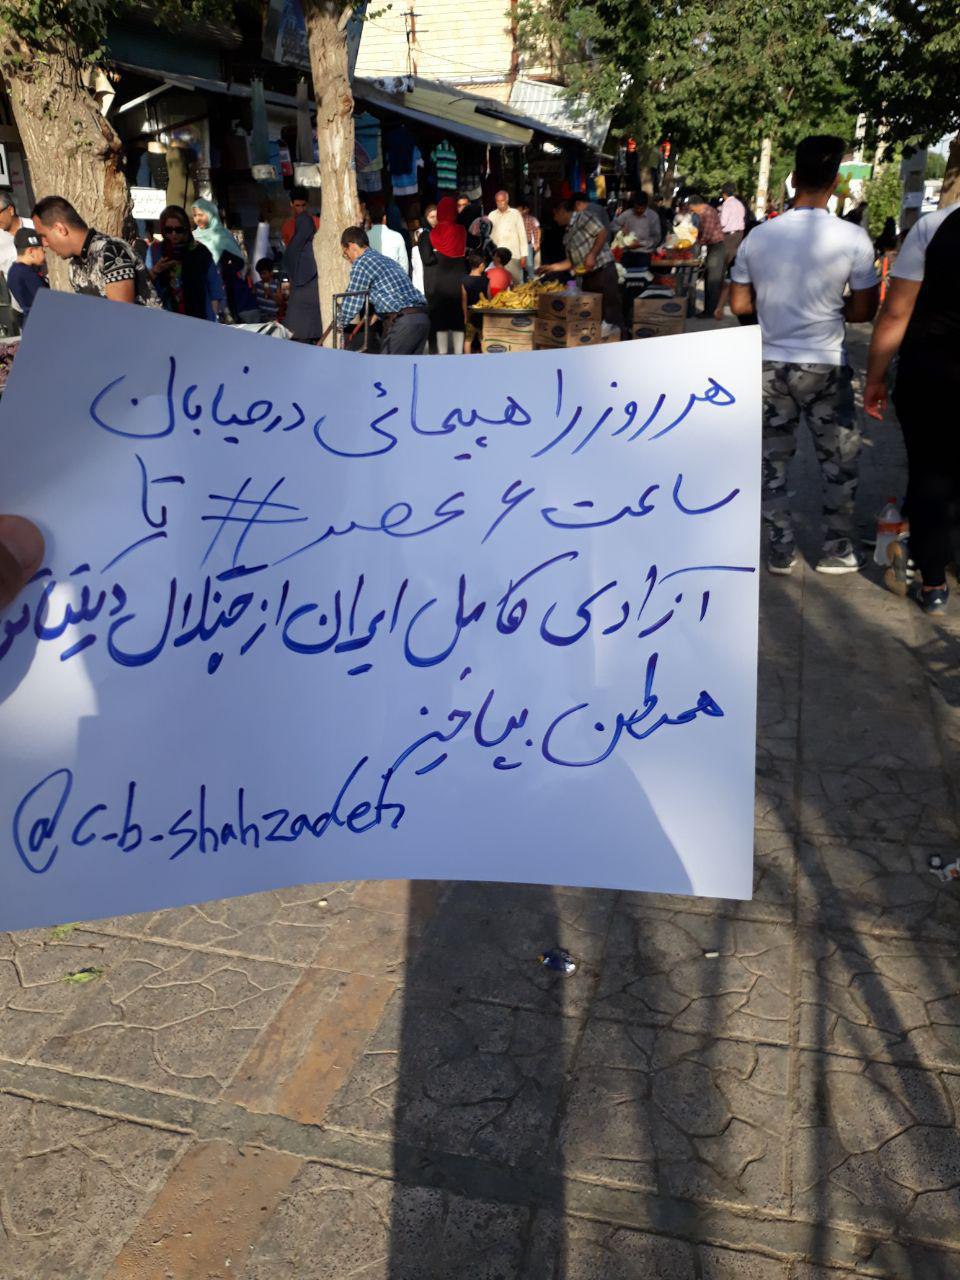 هر روز راهپیمائی در خیابان
ساعت ۶ عصر# تا
آزادی کامل ایران از چنگال
هموطن بپاخیز
@c-b-shahzadeh